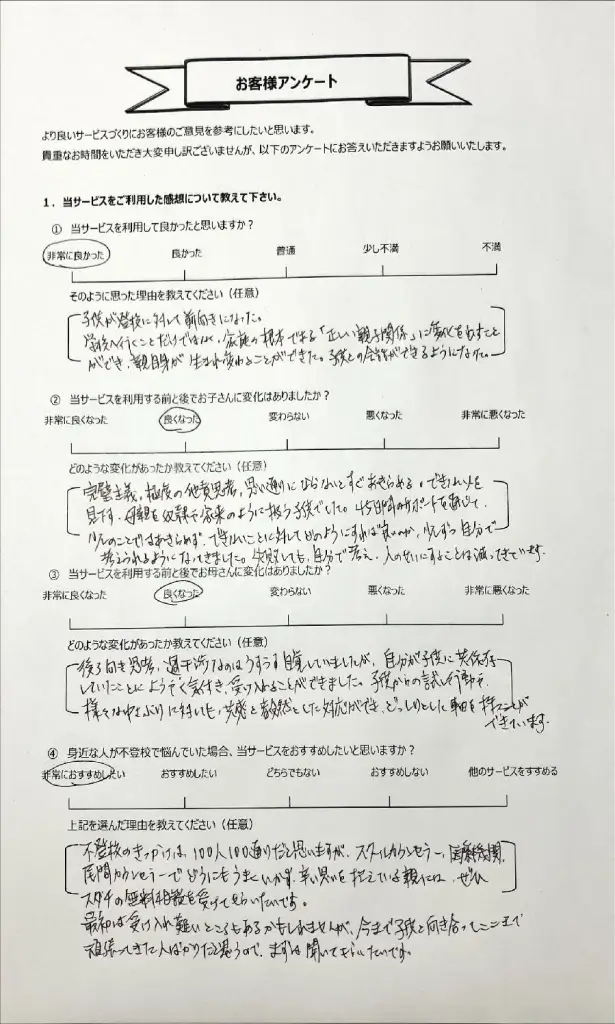 お客様アンケート
より良いサービスづくりにお客様のご意見を参考にしたいと思います。
貴重なお時間をいただき大変申し訳ございませんが、以下のアンケートにお答えいただきますようお願いいたします。
1．当サービスをご利用した感想について教えて下さい。
① 当サービスを利用して良かったと思いますか？
非常に良かった 良かった 普通 少し不満 不満
そのように思った理由を教えてください（任意）
子供が登校に対して前向きになった。
学校へ行くことだけではなく、家族の根本である「正しい親子関係」に気づくことができ
親自身が生まれ変わることができた。子供との会話ができるようになった。
② 当サービスを利用する前と後でお子さんに変化はありましたか？
非常に良くなった 良くなった 変わらない 悪くなった 非常に悪くなった
どのような変化があったか教えてください（任意）
完璧主義、極度の他責思考、思い通りにならないとすぐあきらめる。できない人を
見下す、母親を奴隷や家来のように扱う子供でした。45日間のサポートを通じて、
少しのことではあきらめず、できないことに対してどのようにすれば良いのか、少しずつ自分で
考えられるようになってきました。失敗しても、自分で考え、人のせいにすることは減ってきています。
③ 当サービスを利用する前と後でお母さんに変化はありましたか？
非常に良くなった 良くなった 変わらない 悪くなった 非常に悪くなった
どのような変化があったか教えてください（任意）
後ろ向き思考、過干渉なのはうすうす自覚していましたが、自分が子供に共依存
していたことにようやく気付き、受け入れることができました。子供からの試し行動や、
様々なゆさぶりに対しても、共感と毅然とした対応ができ、どっしりとした 軸を持つことが
できています。
④ 身近な人が不登校で悩んでいた場合、当サービスをおすすめしたいと思いますか？
非常におすすめしたい おすすめしたい どちらでもない おすすめしない 他のサービスをすすめる
上記を選んだ理由を教えてください（任意）
不登校のきっかけは、100人100通りだと思いますが、スクールカウンセラー、医療機関、
民間カウンセラーでどうにもうまくいかず、辛い思いを抱えている親には、ぜひ
スダチの無料相談を受けてもらいたいです。
最初は受け入れ難いところもあるかもしれませんが、今まで子供と向き合ってここまで
頑張ってきた人ばかりだと思うので、まずは聞いてもらいたいです。